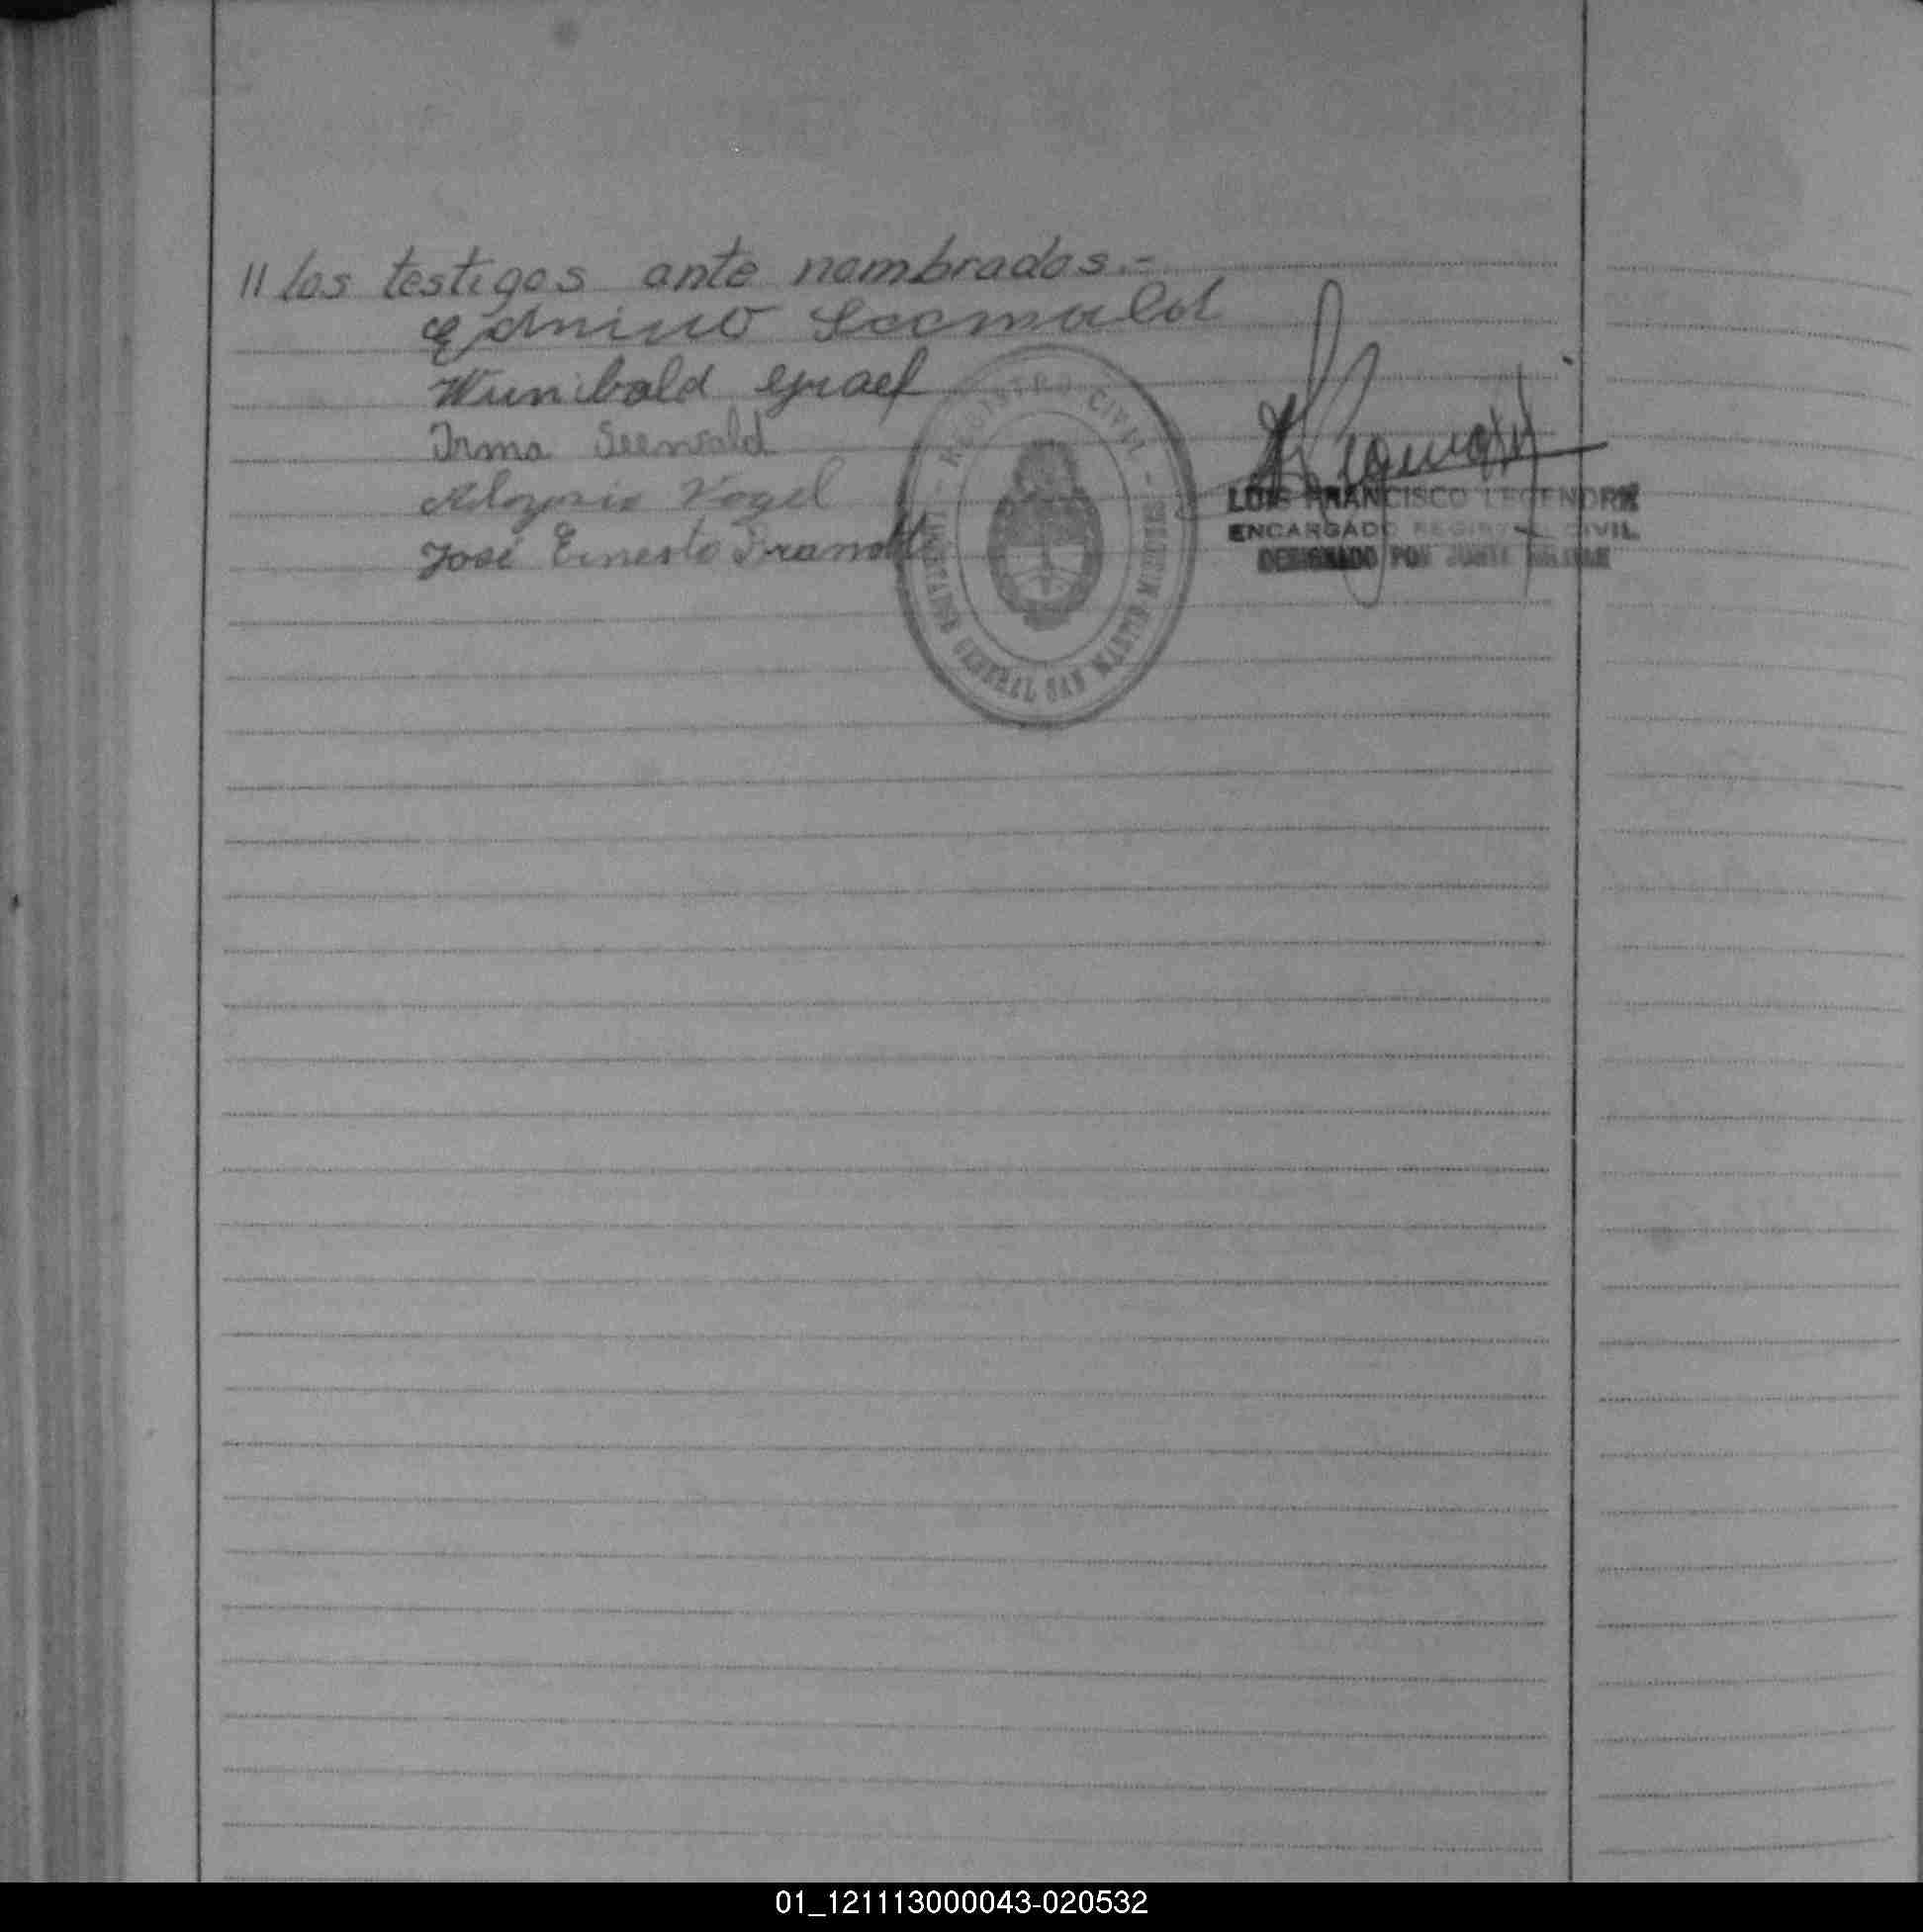 // los testigos ante nombrados.-
Edmino Seewald
Wunibald Graef
Irma Seewald
Aloysio Vogel
José Ernesto Brandt
REGISTRO CIVIL
GENERAL SAN MARTIN MISIONES
LUIS FRANCISCO LEGENDRE
ENCARGADO REGISTRO CIVIL
DESIGNADO POR JUNTA MILITAR
01_121113000043-020532